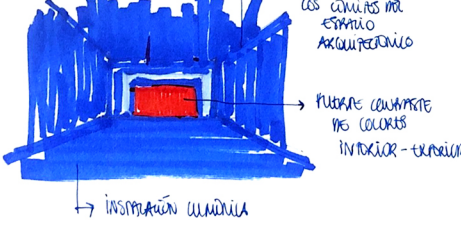 LOS LÍMITES DEL
ESPACIO
ARQUITECTÓNICO
FUERTE CONTRASTE
DE COLORES
INTERIOR - EXTERIOR
INSTALACIÓN LUMÍNICA